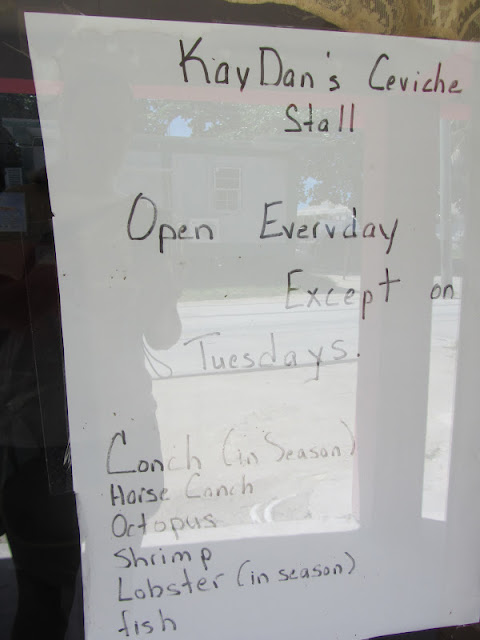 KayDan's Ceviche
Stall
Open Everyday
Except on
Tuesdays.
Conch (in Season)
Horse Conch
Octopus
Shrimp
Lobster (in season)
fish